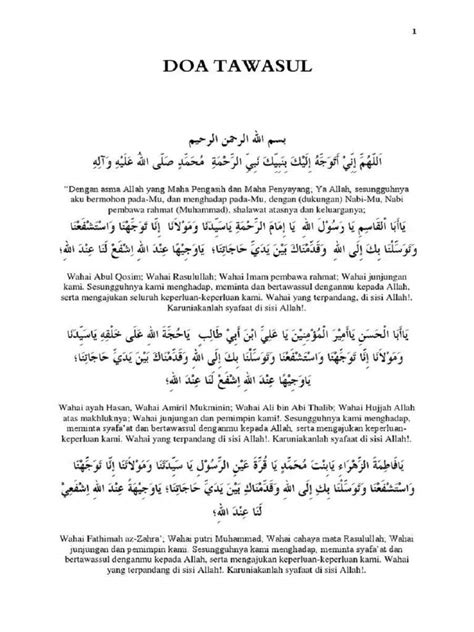 1
DOA TAWASUL
بسم الله الرحمن الرحيم
اَللّهُمَّ اِنِّيْ اَتَوَجَّهُ اِلَيْكَ بِنَبِيِّكَ نَبِيِّ الرَّحْمَةِ مُحَمَّدٍ صَلَّى اللهُ عَلَيْهِ وَآلِهِ
"Dengan asma Allah yang Maha Pengasih dan Maha Penyayang; Ya Allah, sesungguhnya
aku bermohon pada-Mu, dan menghadap pada-Mu, dengan (dukungan) Nabi-Mu, Nabi
pembawa rahmat (Muhammad), shalawat atasnya dan keluarganya;
يَاأَبَا الْقَاسِمِ يَا رَسُوْلَ اللهِ يَا إِمَامَ الرَّحْمَةِ يَاسَيِّدَنَا وَمَوْلاَنَا إِنَّا تَوَجَّهْنَا وَاسْتَشْفَعْنَا
وَتَوَسَّلْنَا بِكَ إِلَى اللهِ وَقَدَّمْنَاكَ بَيْنَ يَدَيْ حَاجَاتِنَا؛ يَاوَجِيْهًا عِنْدَ اللهِ اِشْفَعْ لَنَا عِنْدَ اللهِ؛
Wahai Abul Qosim; Wahai Rasulullah; Wahai Imam pembawa rahmat; Wahai junjungan
kami. Sesungguhnya kami menghadap, meminta dan bertawassul denganmu kepada Allah,
serta mengajukan seluruh keperluan-keperluan kami. Wahai yang terpandang, di sisi Allah!.
Karuniakanlah syafaat di sisi Allah!.
يَاأَبَا الْحَسَنِ يَاأَمِيْرَ الْمُؤْمِنِيْنَ يَا عَلِيَّ ابْنَ أَبِيْ طَالِبٍ يَاحُجَّةَ اللهِ عَلَى خَلْقِهِ يَاسَيِّدَنَا
وَمَوْلاَنَا إِنَّا تَوَجَّهْنَا وَاسْتَشْفَعْنَا وَتَوَسَّلْنَا بِكَ إِلَى اللهِ وَقَدَّمْنَاكَ بَيْنَ يَدَيْ حَاجَاتِنَا؛
يَاوَجِيْهًا عِنْدَ اللهِ اِشْفَعْ لَنَا عِنْدَ اللهِ؛
Wahai ayah Hasan, Wahai Amiril Mukminin; Wahai Ali bin Abi Thalib; Wahai Hujjah Allah
atas makhluknya; Wahai junjungan dan pemimpin kami!. Sesungguhnya kami menghadap,
meminta syafa'at dan bertawassul denganmu kepada Allah, serta mengajukan keperluan-
keperluan kami. Wahai yang terpandang di sisi Allah!. Karuniakanlah syafaat di sisi Allah!.
يَافَاطِمَةَ الزَّهْرَاءِ يَابِنْتَ مُحَمَّدٍ يَا قُرَّةَ عَيْنِ الرَّسُوْلِ يَا سَيِّدَتَنَا وَمَوْلاَتَنَا إِنَّا تَوَجَّهْنَا
وَاسْتَشْفَعْنَا وَتَوَسَّلْنَا بِكِ إِلَى اللهِ وَقَدَّمْنَاكِ بَيْنَ يَدَيْ حَاجَاتِنَا؛ يَاوَجِيْهَةً عِنْدَ اللهِ اِشْفَعِيْ
لَنَا عِنْدَ اللهِ؛
Wahai Fathimah az-Zahra'; Wahai putri Muhammad, Wahai cahaya mata Rasulullah; Wahai
junjungan dan pemimpin kami. Sesungguhnya kami menghadap, meminta syafa'at dan
bertawassul denganmu kepada Allah, serta mengajukan keperluan-keperluan kami. Wahai
yang terpandang di sisi Allah!. Karuniakanlah syafaat di sisi Allah!.